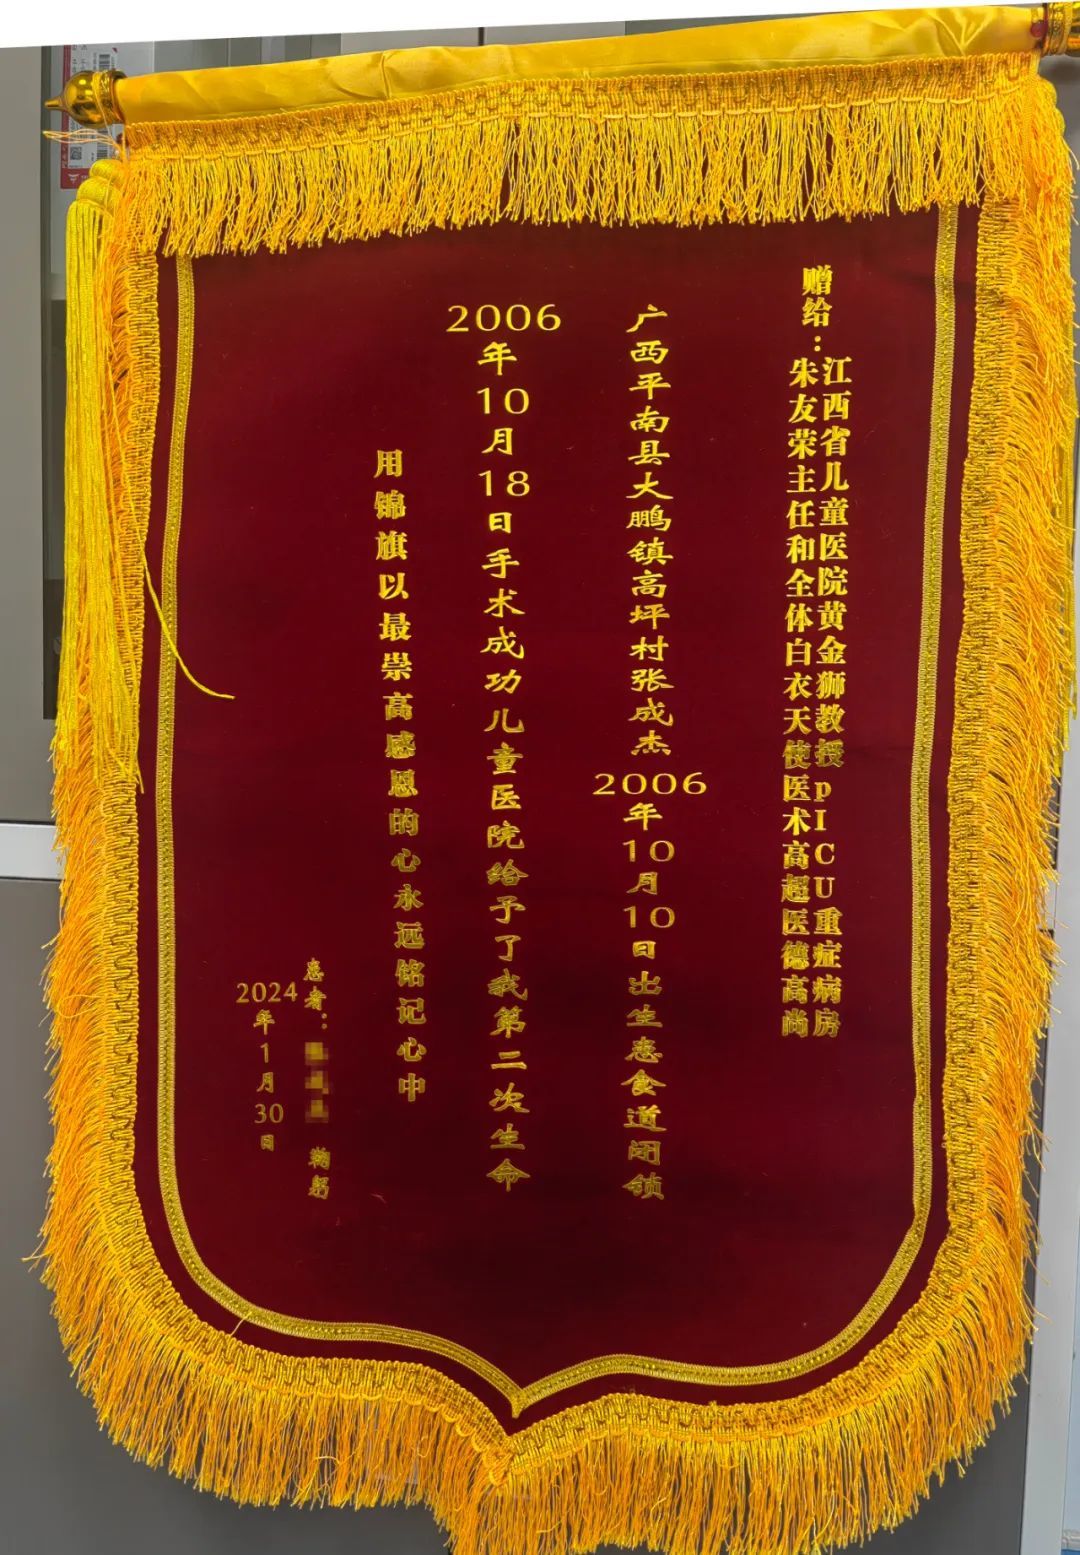 赠给：
江西省儿童医院黄金狮教授pICU重症病房
朱友荣主任和全体白衣天使医术高超医德高尚
广西平南县大鹏镇高坪村张成杰2006年10月10日出生患食道闭锁
2006年10月18日手术成功儿童医院给予了我第二次生命
用锦旗以最崇高感恩的心永远铭记心中
患者：
鞠躬
2024年1月30日